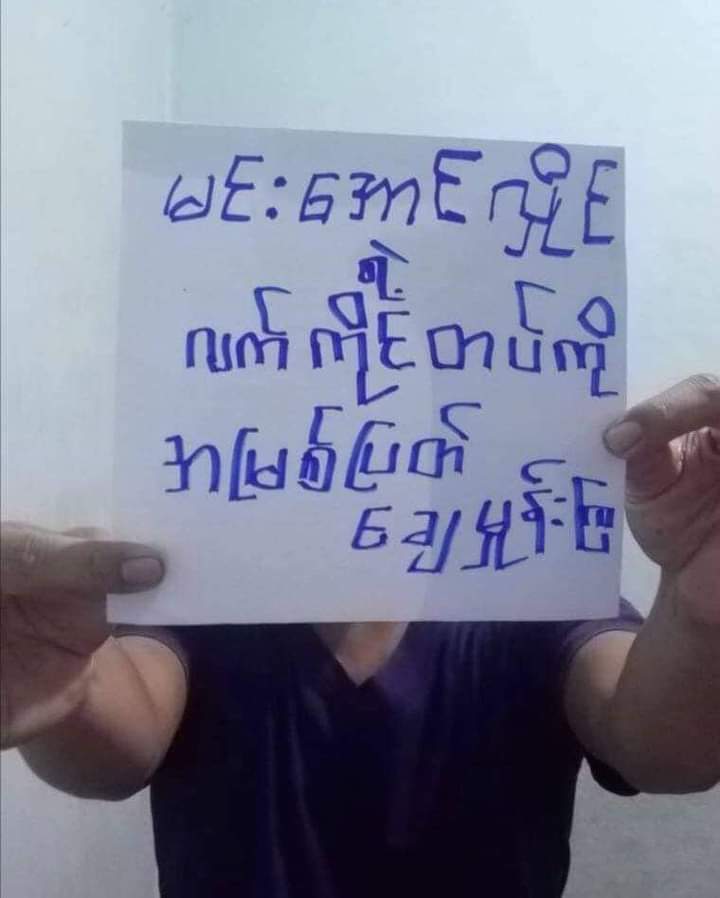 မင်းအောင်လှိုင်
ရဲ့
လက်ကိုင်တပ်ကို
အမြစ်ပြတ်
ချေမှုန်းကြ